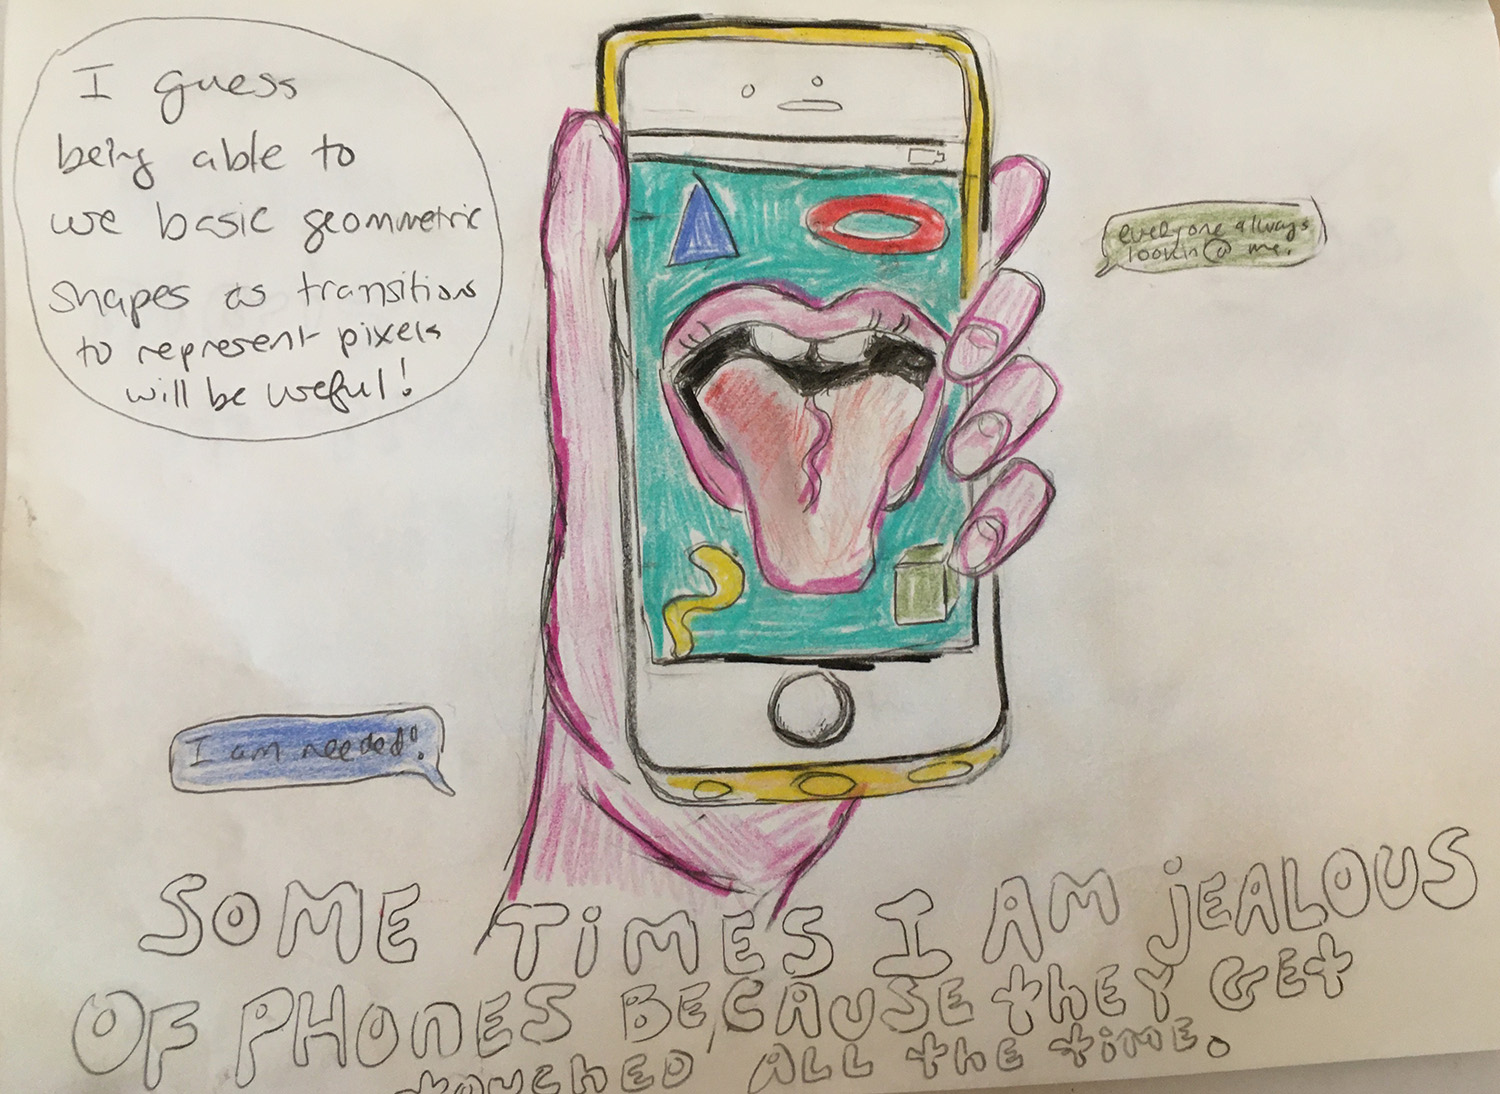 I guess
being able to
use basic geommetric
shapes as transitions
to represent pixels
will be useful!
everyone always
lookin @ me.
I am needed!
SOME TIMES I AM JEALOUS
OF PHONES BECAUSE THEY GET
TOUCHED ALL THE TIME.